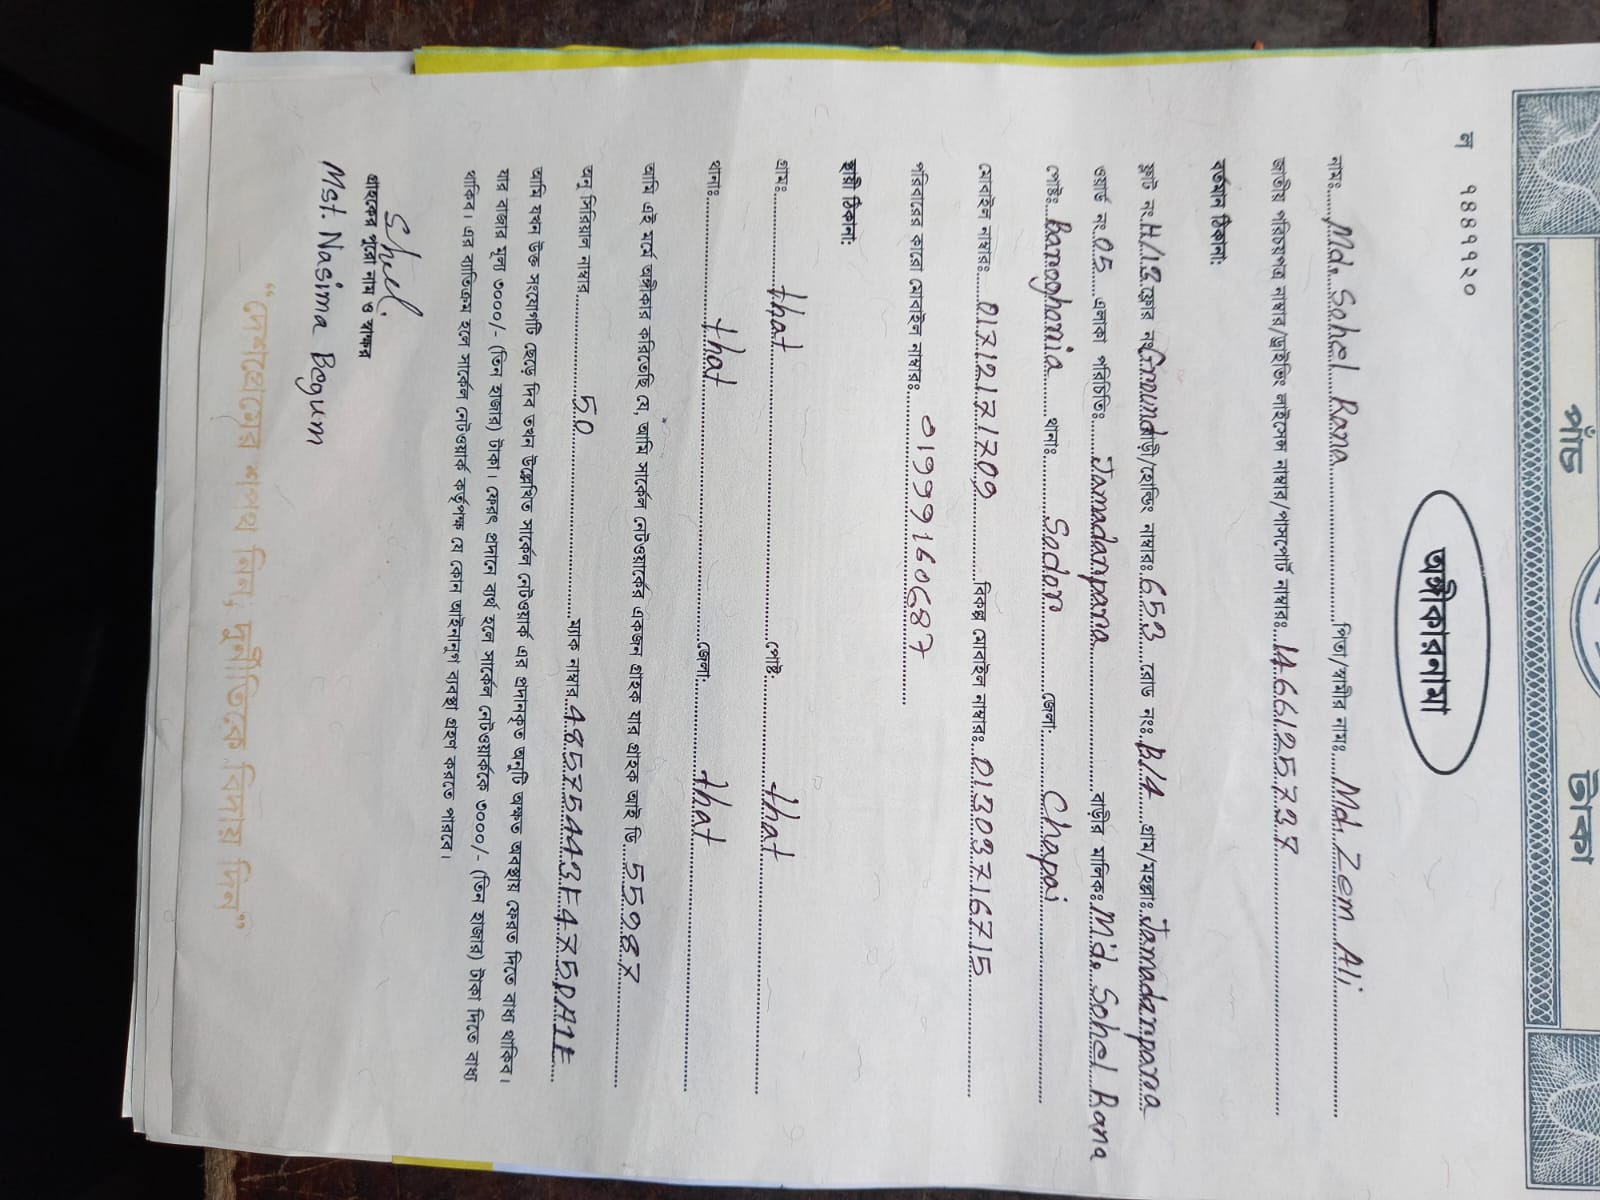 পাঁচ টাকা
ল ৭৪৪৭৭২০
অঙ্গীকারনামা
নামঃ...... Md. Sohel Rana ......পিতা/স্বামীর নামঃ...... Md. Zem Ali ......
জাতীয় পরিচয়পত্র নাম্বার/ড্রাইভিং লাইসেন্স নাম্বার/পাসপোর্ট নাম্বারঃ...... 1466125737 ......
বর্তমান ঠিকানা:
ফ্লাট নং. H/13 ফ্লোর নং Ground বাড়ী/হোল্ডিং নাম্বারঃ 653 ......রোড নংঃ B/4 ......গ্রাম/মহল্লাঃ Jamadarpara
ওয়ার্ড নং 05 ......এলাকা পরিচিতিঃ...... Jamadarpara ......বাড়ীর মালিকঃ Md. Sohel Rana
পোষ্টঃ Baroghoria ......থানাঃ...... Sador ......জেলা:...... Chapai ......
মোবাইল নাম্বারঃ...... 01712171709 ......বিকল্প মোবাইল নাম্বারঃ 01303716715 ......
পরিবারের কারো মোবাইল নাম্বারঃ...... 01999160687 ......
স্থায়ী ঠিকানা:
গ্রামঃ...... that ......পোষ্ট:...... that ......
থানাঃ...... that ......জেলা:...... that ......
আমি এই মর্মে অঙ্গীকার করিতেছি যে, আমি সার্কেল নেটওয়ার্কের একজন গ্রাহক যার গ্রাহক আই ডি.... 55987 ......
অনু সিরিয়াল নাম্বার...... 50 ......ম্যাক নাম্বার 48575443E475DA1E ......
আমি যখন উক্ত সংযোগটি ছেড়ে দিব তখন উল্লেখিত সার্কেল নেটওয়ার্ক এর প্রদানকৃত অনুটি অক্ষত অবস্থায় ফেরত দিতে বাধ্য থাকিব।
যার বাজার মূল্য ৩০০০/- (তিন হাজার) টাকা। ফেরৎ প্রদানে ব্যর্থ হলে সার্কেল নেটওয়ার্ককে ৩০০০/- (তিন হাজার) টাকা দিতে বাধ্য
থাকিব। এর ব্যতিক্রম হলে সার্কেল নেটওয়ার্ক কর্তৃপক্ষ যে কোন আইনানুগ ব্যবস্থা গ্রহণ করতে পারবে।
গ্রাহকের পুরো নাম ও স্বাক্ষর
Mst. Nasima Begum
“দেশপ্রেমের শপথ নিন; দুর্নীতিকে বিদায় দিন”